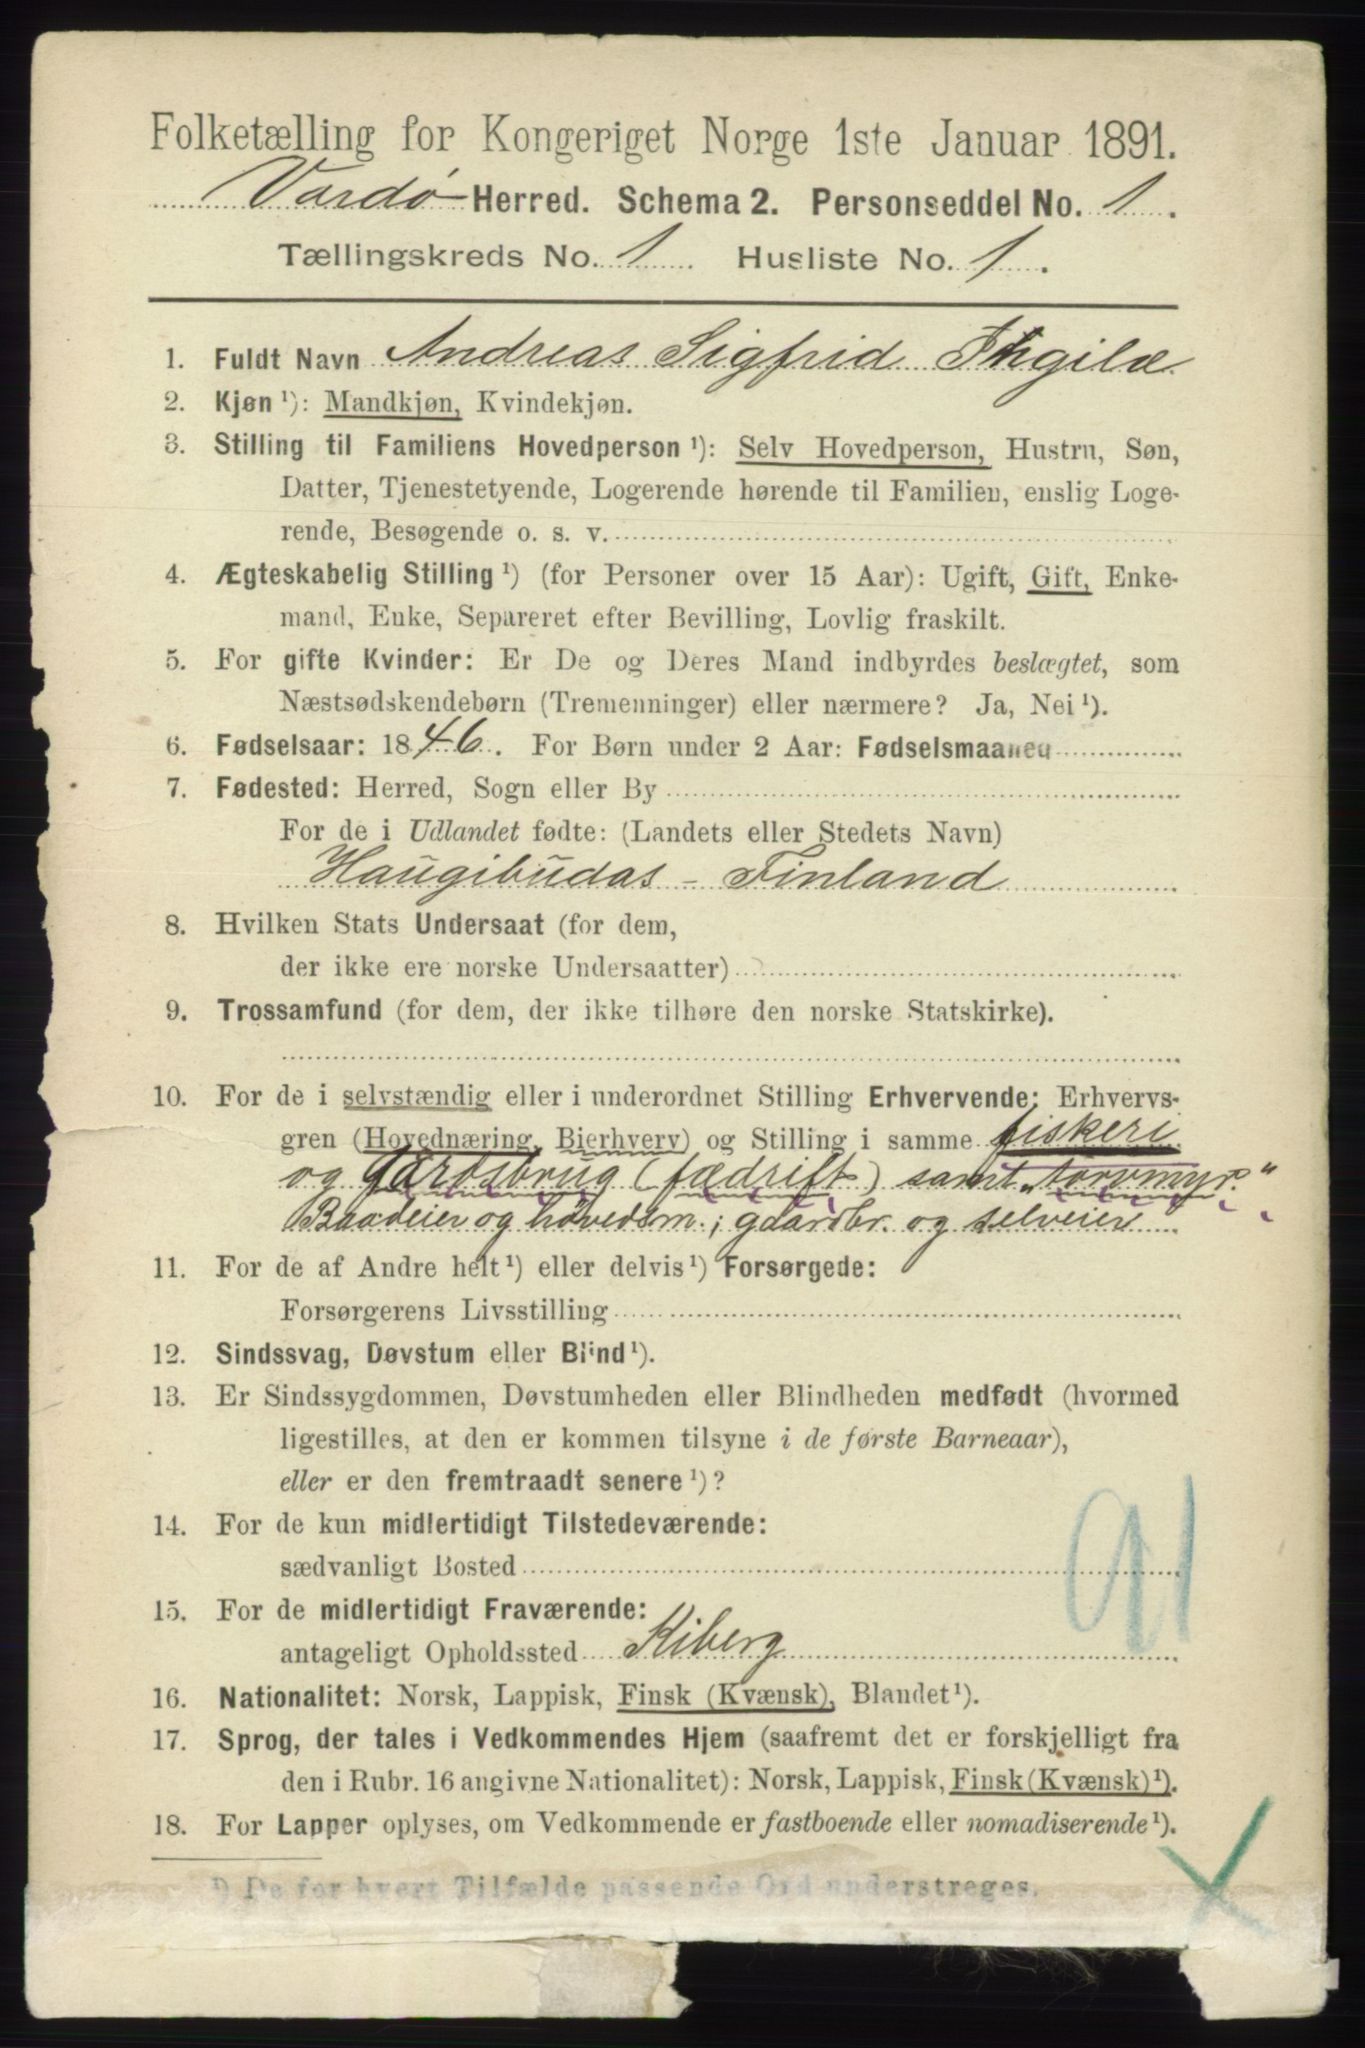 Folketælling for Kongeriget Norge 1ste Januar 1891.
Vardø Herred. Schema 2. Personseddel No. 1.
Tællingskreds No. 1 Husliste No. 1.
1. Fuldt Navn Andreas Sigfrid
2. Kjøn ¹): Mandkjøn, Kvindekjøn.
3. Stilling til Familiens Hovedperson ¹): Selv Hovedperson, Hustru, Søn,
Datter, Tjenestetyende, Logerende hørende til Familien, enslig Loge-
rende, Besøgende o. s. v.
4. Ægteskabelig Stilling ¹) (for Personer over 15 Aar): Ugift, Gift, Enke-
mand, Enke, Separeret efter Bevilling, Lovlig fraskilt.
5. For gifte Kvinder: Er De og Deres Mand indbyrdes beslægtet, som
Næstsødskendebørn (Tremenninger) eller nærmere? Ja, Nei ¹).
6. Fødselsaar: 1846. For Børn under 2 Aar: Fødselsmaaned
7. Fødested: Herred, Sogn eller By
For de i Udlandet fødte: (Landets eller Stedets Navn)
Haugibudas - Finland
8. Hvilken Stats Undersaat (for dem,
der ikke ere norske Undersaatter)
9. Trossamfund (for dem, der ikke tilhøre den norske Statskirke).
10. For de i selvstændig eller i underordnet Stilling Erhvervende: Erhvervs-
gren (Hovednæring, Bierhverv) og Stilling i samme fiskeri
og Gardsbrug (fædrift) samt „torvmyr."
Baadeier og høvedsm.; gaardbr. og selveier
11. For de af Andre helt ¹) eller delvis ¹) Forsørgede:
Forsørgerens Livsstilling
12. Sindssvag, Døvstum eller Blind ¹).
13. Er Sindssygdommen, Døvstumheden eller Blindheden medfødt (hvormed
ligestilles, at den er kommen tilsyne i de første Barneaar),
eller er den fremtraadt senere ¹)?
14. For de kun midlertidigt Tilstedeværende:
sædvanligt Bosted
91
15. For de midlertidigt Fraværende:
antageligt Opholdssted Kiberg
16. Nationalitet: Norsk, Lappisk, Finsk (Kvænsk), Blandet ¹).
17. Sprog, der tales i Vedkommendes Hjem (saafremt det er forskjelligt fra
den i Rubr. 16 angivne Nationalitet): Norsk, Lappisk, Finsk (Kvænsk) ¹).
18. For Lapper oplyses, om Vedkommende er fastboende eller nomadiserende ¹).
¹) De for hvert Tilfælde passende Ord understreges.